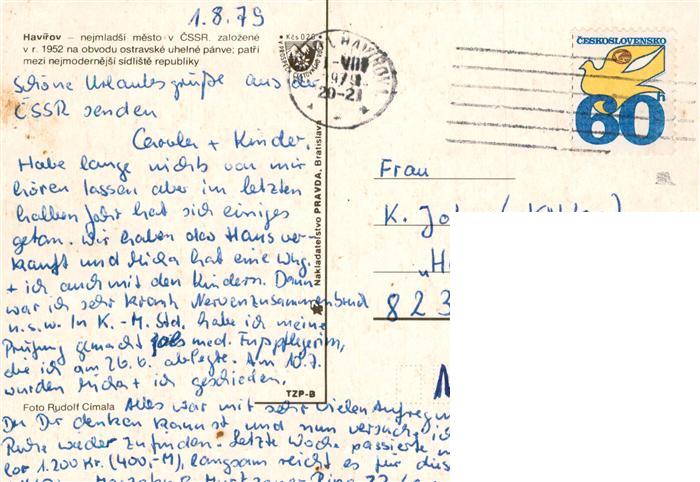 1.8.79
Havířov – nejmladší město v ČSSR. založené
v r. 1952 na obvodu ostravské uhelné pánve; patří
mezi nejmodernější sídliště republiky
Schöne Urlaubsgrüße aus der
ČSSR senden
Carola + Kinder.
Habe lange nichts von mir
hören lassen aber im letzten
halben Jahr hat sich einiges
getan. Wir haben das Haus ver-
kauft und Micha hat eine Whg.
+ ich auch mit den Kindern. Dann
war ich sehr krank Nervenzusammenbruch
u.s.w. In K.-M.Std. habe ich meine
Prüfung gemacht als med. Fußpflegerin,
die ich am 26.6. ablegte. Am 10.7.
wurden Micha + ich geschieden.
Foto Rudolf Cimala
Alles war mit sehr vielen Aufregun
Du Dir denken kannst und nun versuche ich
Ruhe wieder zu finden. Letzte Woche passierte
lor 1.200 Kr. (400,-M), langsam reicht es für dies
Kčs 0,20
HAVÍŘOV 1
1.-VIII
79
20-21
Nakladatelstvo PRAVDA, Bratislava
TZP-B
ČESKOSLOVENSKO
60 h
Frau
K.
823